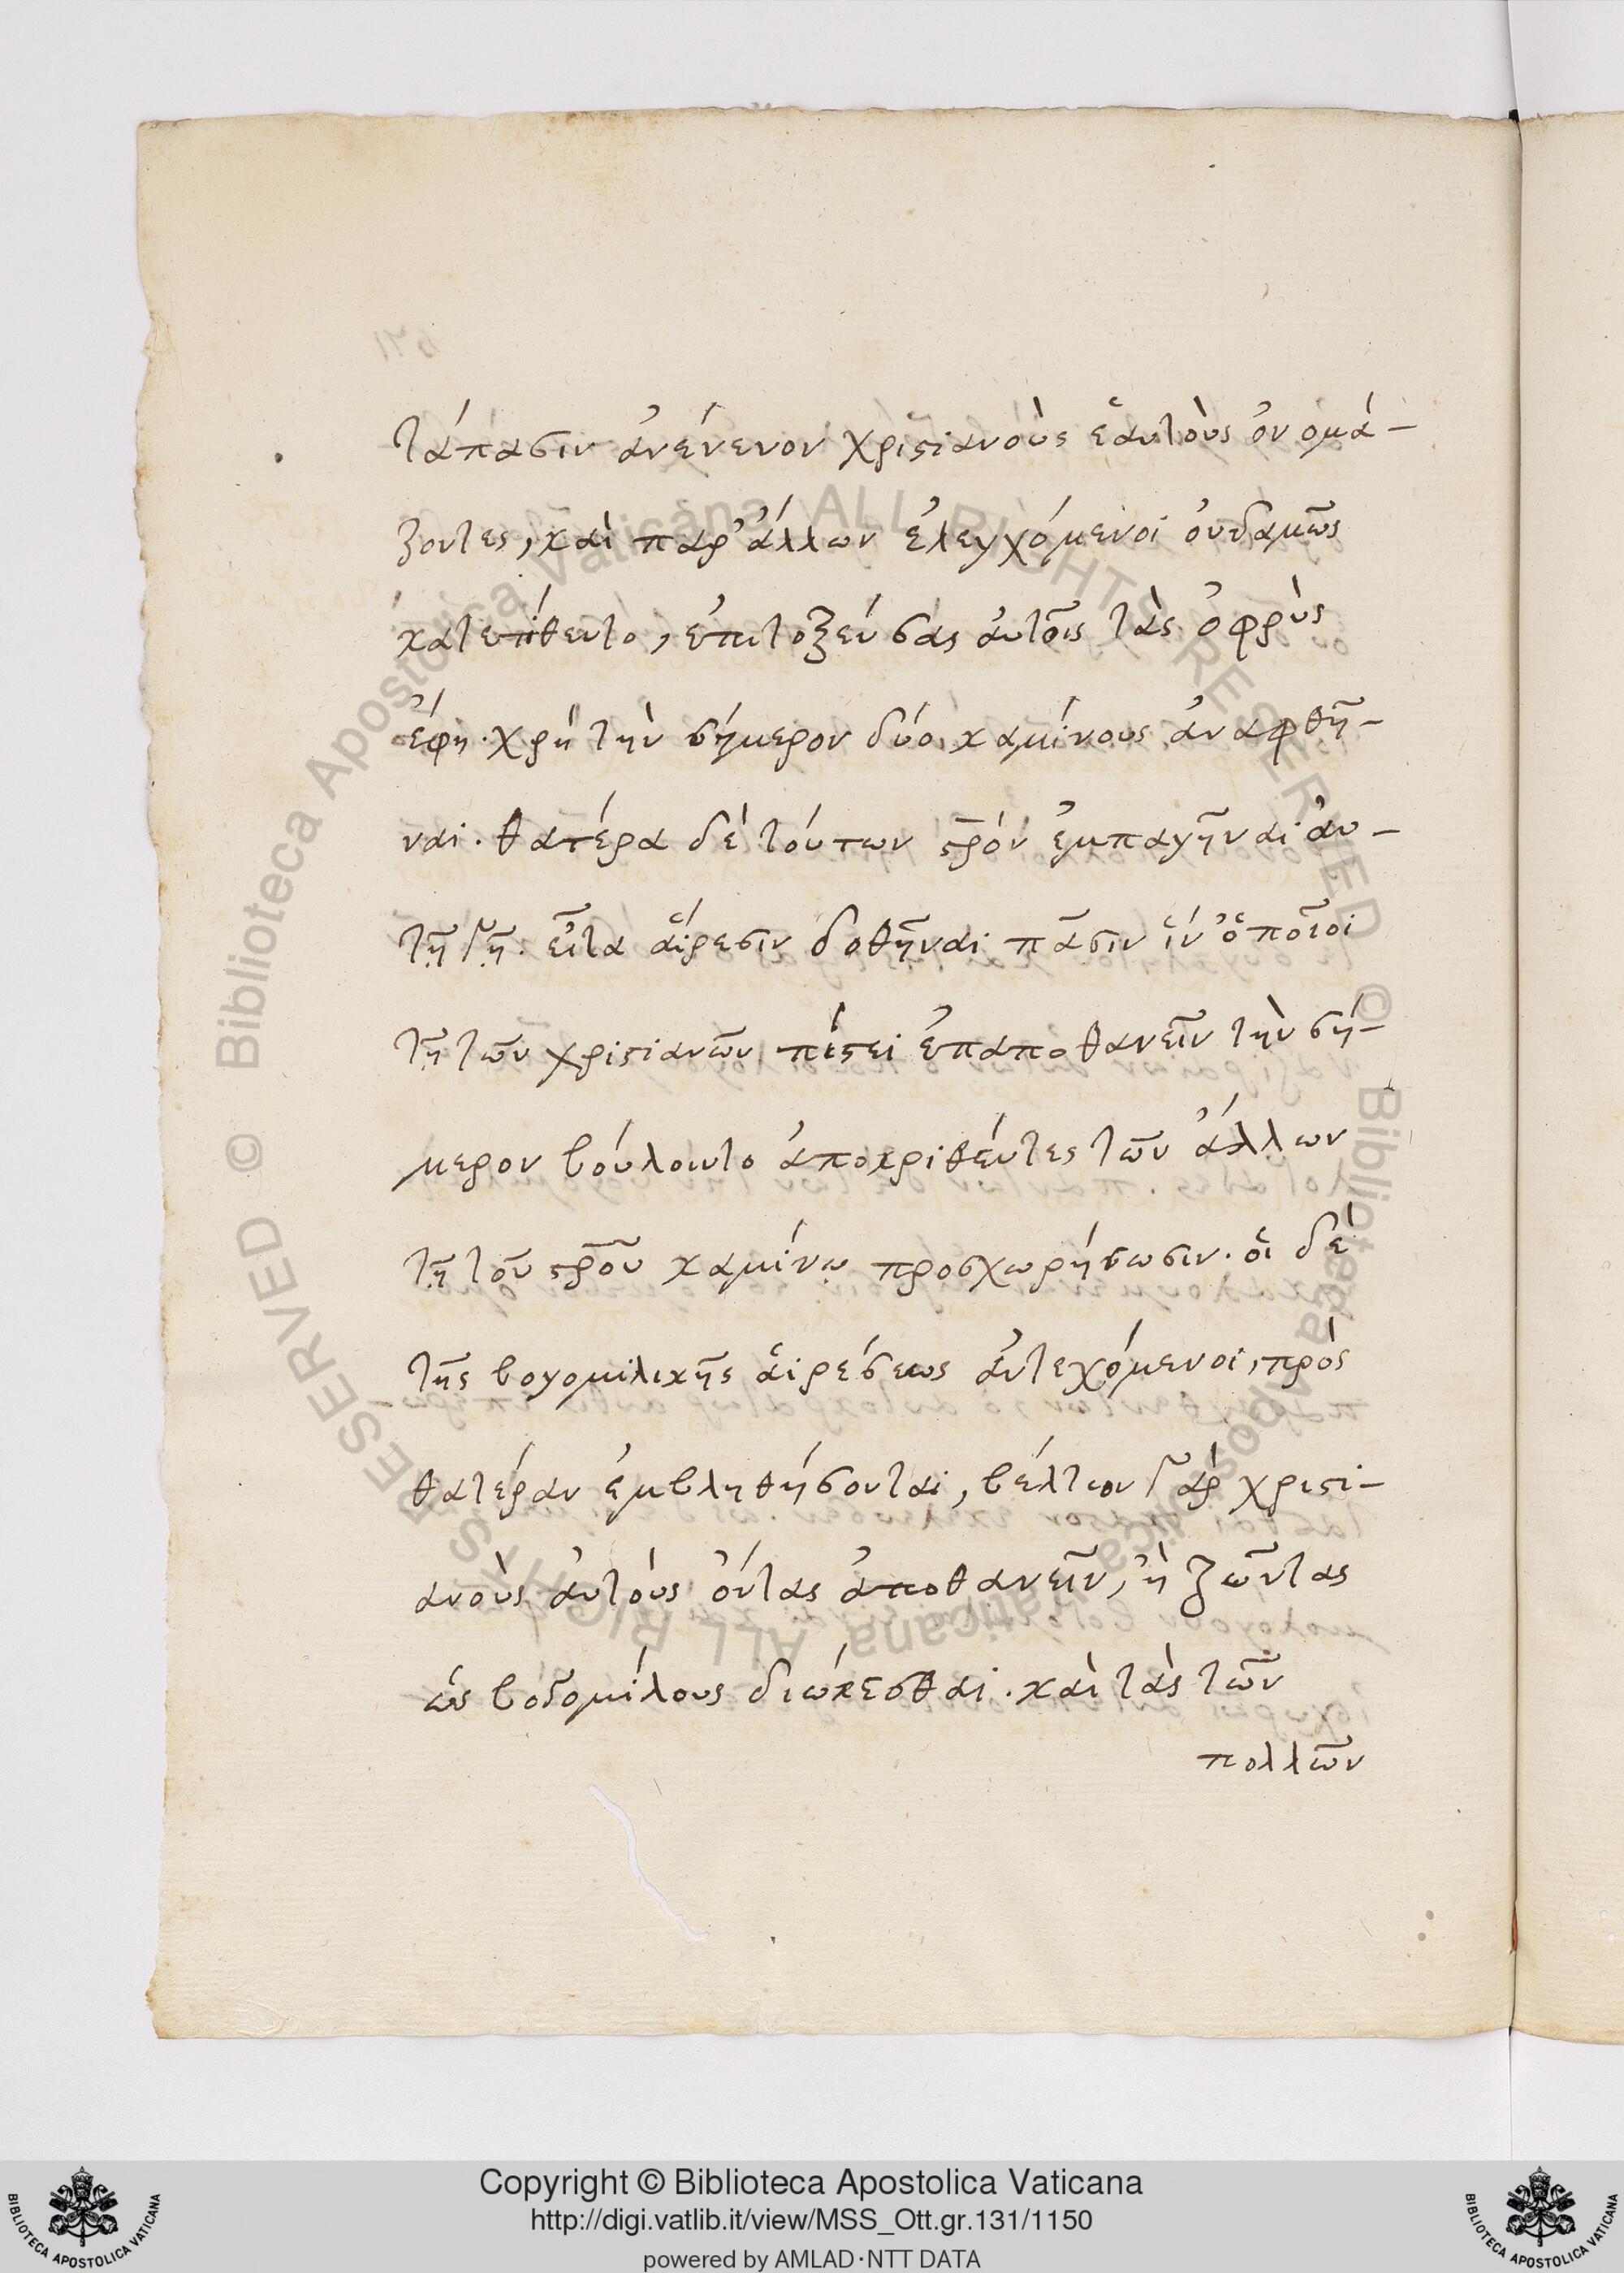 τάπασιν ἀνένευον χριϛιανοὺς ἑαυτοὺς ὀνομά-
ζοντες, καὶ παρ' ἄλλων ἐλεγχόμενοι οὐδαμῶς
κατετίθεντο, ἐπιτοξεύσας αὐτοῖς τὰς ὀφρὺς
ἔφη. χρὴ τὴν σήμερον δύο καμίνους ἀναφθῆ-
ναι. θατέρα δὲ τούτων ϛρ̅όν ἐμπαγῆναι αὐ-
τῇ γῇ. εἶτα αἵρεσιν δοθῆναι πᾶσιν ἵν' ὁποῖοι
τῇ τῶν χριϛιανῶν πίϛει ἐπαποθανεῖν τὴν σή-
μερον βούλοιντο ἀποκριθέντες τῶν ἄλλων
τῇ τοῦ ϛρ̅οῦ καμίνῳ προσχωρήσωσιν. οἱ δὲ
τῆς βογομιλικῆς αἱρέσεως ἀντεχόμενοι, πρὸς
θατέραν ἐμβληθήσονται, βέλτιον γὰρ χριϛι-
ανοὺς αὐτοὺς ὄντας ἀποθανεῖν, ἢ ζῶντας
ὡς βογομίλους διώκεσθαι. καὶ τὰς τῶν
πολλῶν
Copyright © Biblioteca Apostolica Vaticana
http://digi.vatlib.it/view/MSS_Ott.gr.131/1150
powered by AMLAD·NTT DATA
BIBLIOTECA APOSTOLICA VATICANA
BIBLIOTECA APOSTOLICA VATICANA
© Biblioteca Apostolica Vaticana ALL RIGHTS RESERVED © Biblioteca Apostolica Vaticana ALL RIGHTS RESERVED